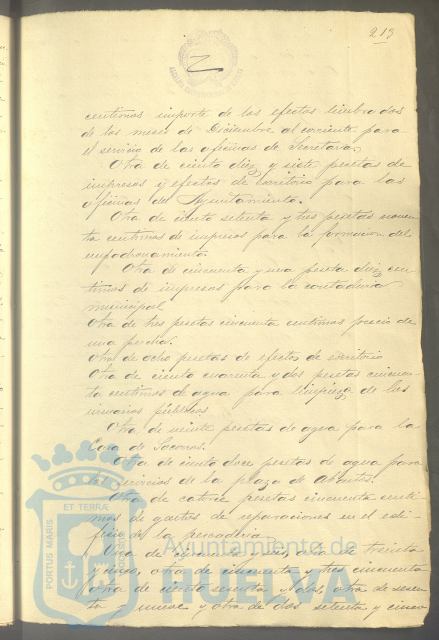 213
centimos importe de los efectos timbrados
de los meses de Diciembre al corriente para
el servicio de las oficinas de Secretaria.
Otra de ciento diez y siete pesetas de
impresos y efectos de escritorio para las
oficinas del Ayuntamiento.
Otra de ciento setenta y tres pesetas noven-
ta centimos de impresos para la formacion del
empadronamiento.
Otra de cincuenta y una peseta diez cen-
timos de impresos para la contaduria
municipal
Otra de tres pesetas cincuenta centimos precio de
una percha.
Otra de ocho pesetas de efectos de escritorio
Otra de ciento cuarenta y dos pesetas cincuen-
ta centimos de agua para limpieza de los
urinarios publicos.
Otra de veinte pesetas de agua para la
Casa de Socorro.
Otra de ciento doce pesetas de agua para
los servicios de la plaza de Abastos.
Otra de catorce pesetas cincuenta centi-
mos de gastos de reparaciones en el edi-
ficio de la pescaderia
Otra de treinta
y cinco, otra de cincuenta y tres cincuenta
otra de ciento y dos, otra de sesen-
ta y nueve y otra de dos setenta y cinco
PORTUS MARIS
ET TERRÆ
Ayuntamiento de
HUELVA